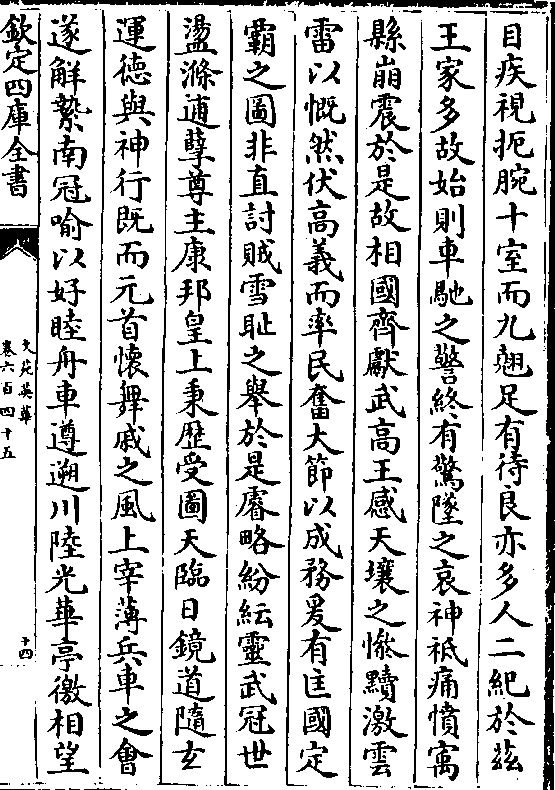 目疾視扼腕十室而九翹足有待良亦多人二紀於茲
王家多故始則車馳之警終有驚墜之哀神祇痛憤㝢
縣崩震於是故相國齊獻武高王感天壤之慘黷激雲
雷以慨然伏高義而率民奮大節以成務爰有匡國定
霸之圖非直討賊雪恥之舉於是睿略紛紜靈武冠世
盪滌逋孽尊主康邦皇上秉歴受圖天臨日鏡道隨玄
運徳與神行既而元首懷舞戚之風上宰薄兵車之會
遂解縶南冠喻以好睦舟車遵遡川陸光華亭徼相望
欽定四庫全書
文苑英華
卷六百四十五
十四